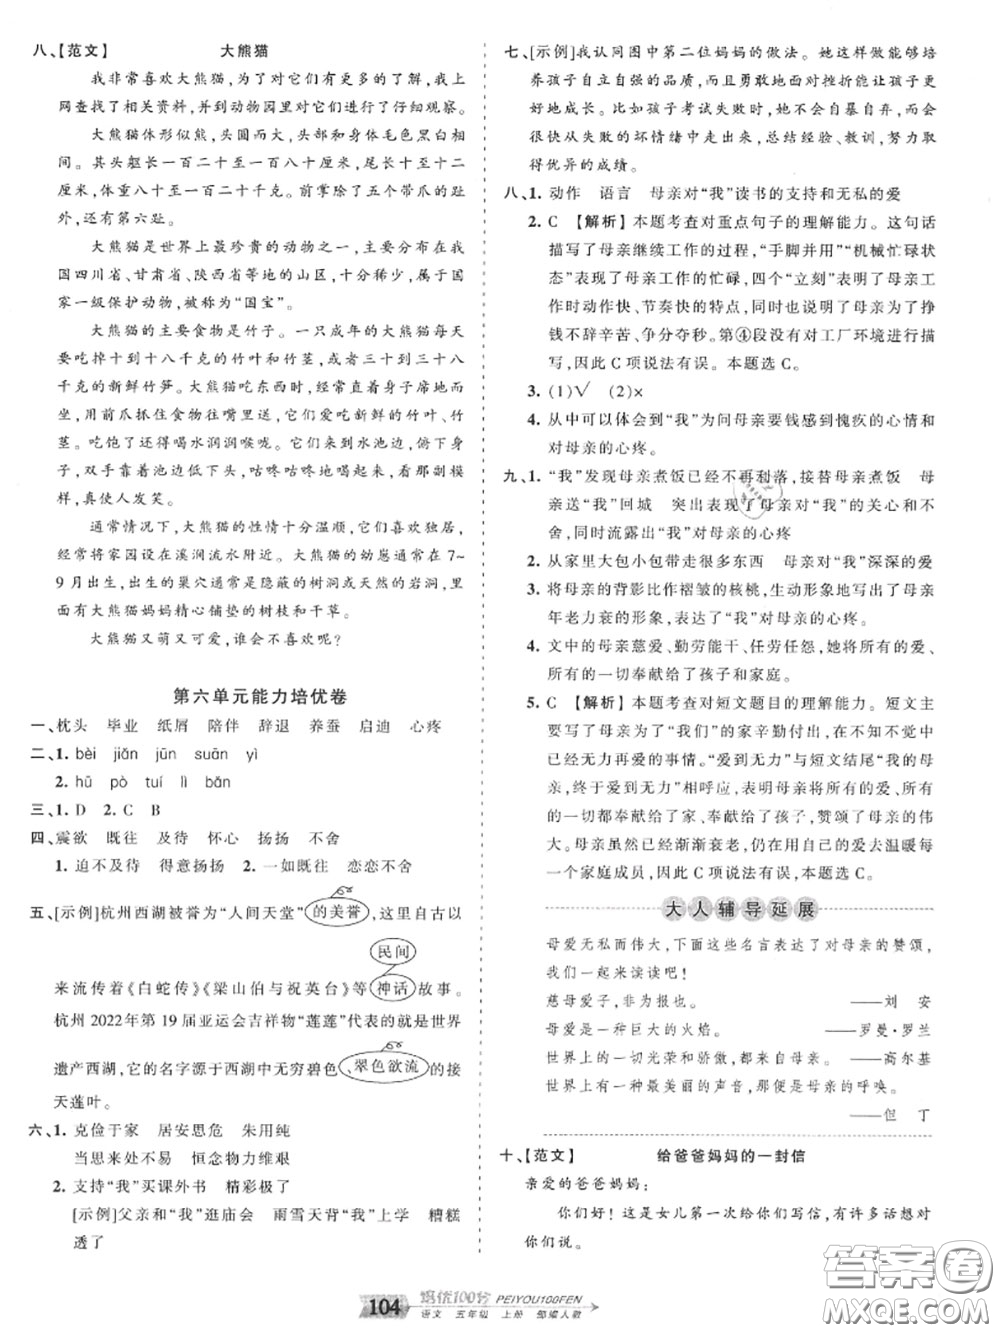 八、[范文]　大熊猫
我非常喜欢大熊猫,为了对它们有更多的了解,我上
网查找了相关资料,并到动物园里对它们进行了仔细观察。
大熊猫体形似熊,头圆而大,头部和身体毛色黑白相
间。其头躯长一百二十至一百八十厘米,尾长十至十二
厘米,体重八十至一百二十千克。前掌除了五个带爪的趾
外,还有第六趾。
大熊猫是世界上最珍贵的动物之一,主要分布在我
国四川省、甘肃省、陕西省等地的山区,十分稀少,属于国
家一级保护动物,被称为“国宝”。
大熊猫的主要食物是竹子。一只成年的大熊猫每天
要吃掉十到十八千克的竹叶和竹茎,或者三十到三十八
千克的新鲜竹笋。大熊猫吃东西时,经常直着身子席地而
坐,用前爪抓住食物往嘴里送,它们爱吃新鲜的竹叶、竹
茎。吃饱了还得喝水润润喉咙。它们来到水池边,俯下身
子,双手靠着池边,咕咚咕咚地喝起来,看那副模
样,真使人发笑。
通常情况下,大熊猫的性情十分温顺,它们喜欢独居,
经常将家园设在溪涧流水附近。大熊猫的幼崽通常在7~
9月出生,出生的巢穴通常是隐蔽的树洞或天然的岩洞,里
面有大熊猫妈妈精心铺垫的树枝和干草。
大熊猫又萌又可爱,谁会不喜欢呢?
第六单元能力培优卷
一、枕头　毕业　纸屑　陪伴　辞退　养蚕　启迪　心疼
二、1. bèi　jiǎn　jūn　suān　yì
2. hū　pò　tuí　lì　bǎn
三、1. D　2. C　B
四、震欲　既往　及待　怀心　扬扬　不舍
1. 迫不及待　得意扬扬　2. 一如既往　恋恋不舍
五、[示例]杭州西湖被誉为“人间天堂”的美誉,这里自古以
民间
来流传着《白蛇传》《梁山伯与祝英台》等神话故事。
杭州2022年第19届亚运会吉祥物“莲莲”代表的就是世界
遗产西湖,它的名字源于西湖中无穷碧色、翠色欲流的接
天莲叶。
六、1. 克俭于家　居安思危　朱用纯
当思来处不易　恒念物力维艰
2. 支持“我”买课外书　精彩极了
[示例]父亲和“我”逛庙会　雨雪天背“我”上学　糟糕
透了
七、[示例]我认同图中第二位妈妈的做法。她这样做能够培
养孩子自立自强的品质,而且勇敢地面对挫折能让孩子更
好地成长。比如孩子考试失败时,她不会自暴自弃,而会
很快从失败的坏情绪中走出来,总结经验、教训,努力取
得优异的成绩。
八、1. 动作　语言　母亲对“我”读书的支持和无私的爱
2. C　[解析]本题考查对重点句子的理解能力。这句话
描写了母亲继续工作的过程,“手脚并用”“机械忙碌状
态”表现了母亲工作的忙碌,四个“立刻”表现了母亲工
作时动作快、节奏快的特点,同时也说明了母亲为了挣
钱不辞辛苦、争分夺秒。第④段没有对工厂环境进行描
写,因此C项说法有误。本题选C。
3. (1)√　(2)×
4. 从中可以体会到“我”为问母亲要钱感到愧疚的心情和
对母亲的心疼。
九、1. “我”发现母亲煮饭已经不再利落,接替母亲煮饭　母
亲送“我”回城　突出表现了母亲对“我”的关心和不
舍,同时流露出“我”对母亲的心疼
2. 从家里大包小包带走很多东西　母亲对“我”深深的爱
3. 将母亲的背影比作褶皱的核桃,生动形象地写出了母亲
年老力衰的形象,表达了“我”对母亲的心疼。
4. 文中的母亲慈爱、勤劳能干、任劳任怨,她将所有的爱、
所有的一切奉献给了孩子和家庭。
5. C　[解析]本题考查对短文题目的理解能力。短文主
要写了母亲为了“我们”的家辛勤付出,在不知不觉中
已经无力再爱的事情。“爱到无力”与短文结尾“我的母
亲,终于爱到无力”相呼应,表明母亲将所有的爱、所有
的一切都奉献给了家、奉献给了孩子,赞颂了母亲的伟
大。母亲虽然已经渐渐衰老,仍在用自己的爱去温暖每
一个家庭成员,因此C项说法有误,本题选C。
大人辅导延展
母爱无私而伟大,下面这些名言表达了对母亲的赞颂,
我们一起来读读吧!
慈母爱子,非为报也。　——刘　安
母爱是一种巨大的火焰。　——罗曼·罗兰
世界上的一切光荣和骄傲,都来自母亲。　——高尔基
世界上有一种最美丽的声音,那便是母亲的呼唤。
——但　丁
十、[范文]　给爸爸妈妈的一封信
亲爱的爸爸妈妈:
你们好!这是女儿第一次给你们写信,有许多话想对
你们说。
104　培优100分　PEIYOU100FEN
语文　五年级　上册　部编人教
作业精灵